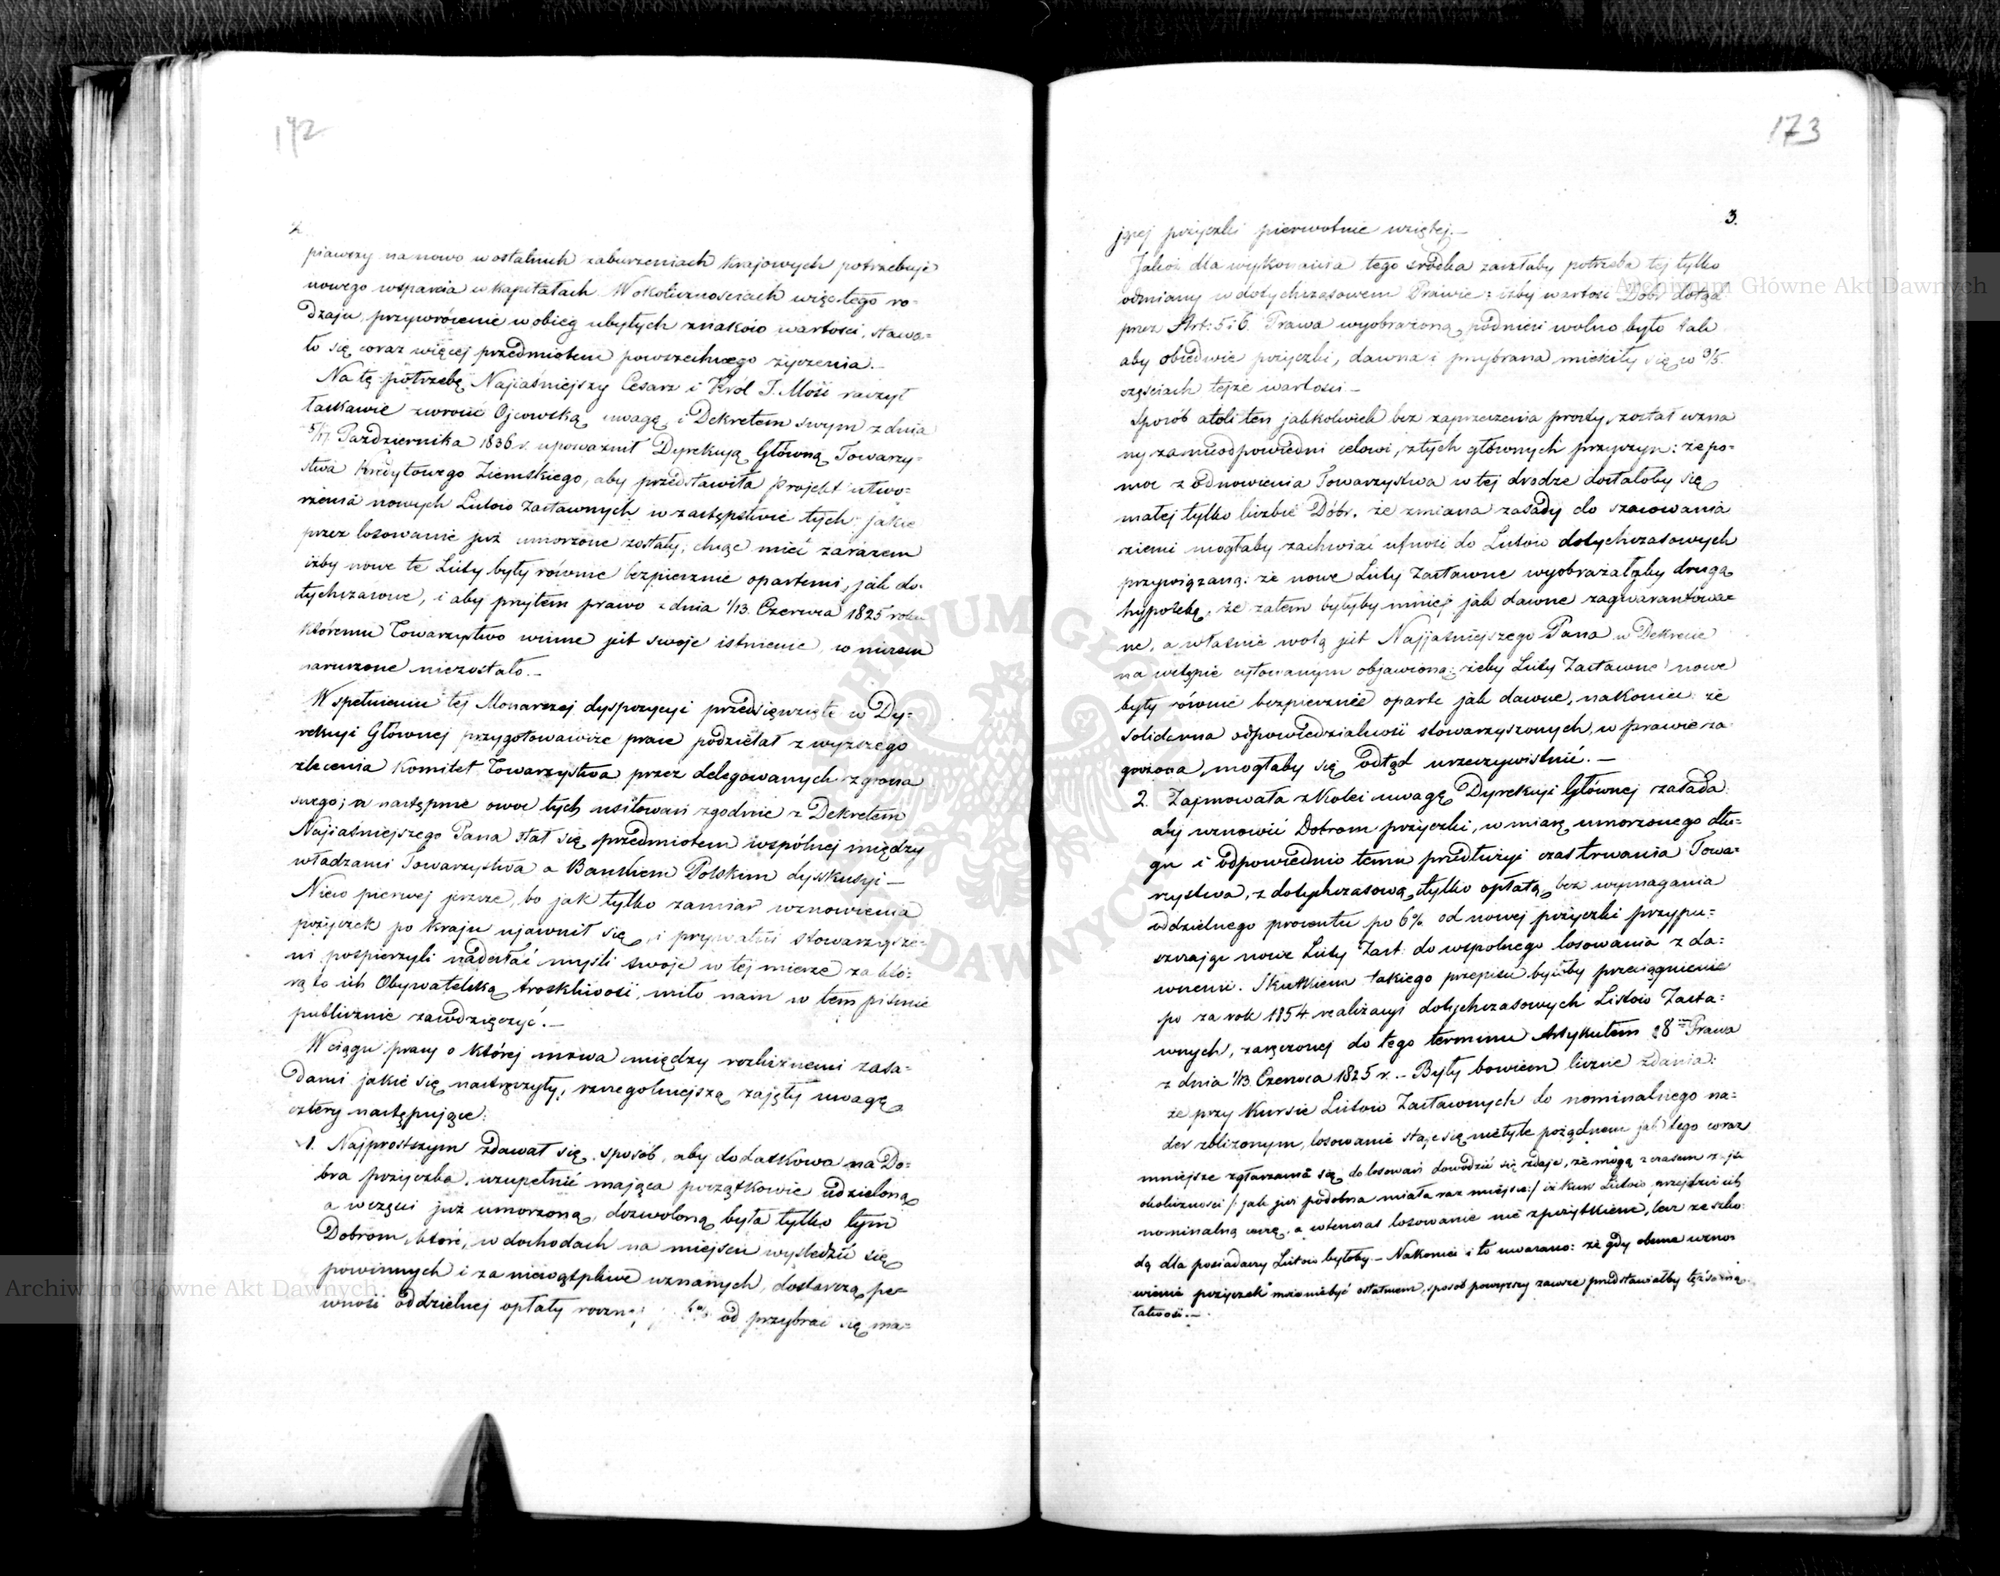 172
2.
piawszy na nowo w ostatnich zaburzeniach krajowych potrzebuje
nowego wsparcia w kapitałach. W okolicznościach więc tego ro-
dzaju, przywrócenie w obieg ubyłych znaków wartości, stawa-
ło się coraz więcej przedmiotem powszechnego życzenia.—
Na tę potrzebę Najiaśniejszy Cesarz i Król J. Mość raczył
łaskawie zwrócić Ojcowską uwagę, i Dekretem swym z dnia
5/17 Października 1836 r. upoważnił Dyrekcyą Główną Towarzy-
stwa Kredytowego Ziemskiego, aby przedstawiła projekt utwo-
rzenia nowych Listów Zastawnych w zastępstwie tych, jakie
przez losowanie już umorzone zostały; chcąc mieć zarazem
iżby nowe te Listy były równie bezpiecznie opartemi, jak do-
tychczasowe, i aby przytem prawo z dnia 1/13 Czerwca 1825 roku
któremu Towarzystwo winne jest swoje istnienie, w niczem
naruszone niezostało.—
W spełnieniu tej Monarszej dyspozycyi przedsięwzięte w Dy-
rekcyi Głównej przygotowawcze prace podzielał z wyższego
zlecenia Komitet Towarzystwa przez delegowanych z grona
swego; a następnie owoc tych usiłowań zgodnie z Dekretem
Najiaśniejszego Pana stał się przedmiotem wspólnej między
władzami Towarzystwa a Bankiem Polskim dyskusyi—
Nieco pierwej jeszcze, bo jak tylko zamiar wznowienia
pożyczek po kraju ujawnił się, i prywatni stowarzysze-
ni pospieszyli nadesłać myśli swoje w tej mierze za któ-
rą to ich Obywatelską troskliwość, miło nam w tem piśmie
publicznie zawdzięczyć.—
W ciągu pracy o której mowa między rozlicznemi zasa-
dami jakie się nastręczyły, szczególniejszą zajęły uwagę
cztery następujące:
1. Najprostszym zdawał się sposób, aby dodatkowa na Do-
bra pożyczka, uzupełnić mająca początkowie udzieloną
a w części już umorzoną, dozwoloną była tylko tym
Dobrom, które, w dochodach na miejscu wyśledzić się
powinnych i za niewątpliwe uznanych, dostarczą pe-
wności oddzielnej opłaty roczn 6% od przybrać się ma-
173
3.
jącej pożyczki pierwotnie wziętej.—
Jakoż dla wykonania tego środka zaszłaby potrzeba tej tylko
odmiany w dotychczasowem Prawie; iżby wartość Dóbr dotąd
przez Art: 5 i 6. Prawa wyobrażoną, podnieść wolno było tak
aby obiedwie pożyczki, dawna i przybrana mieściły się w 3/5
częściach tejże wartości—
Sposób atoli ten jakkolwiek bez zaprzeczenia prosty, został uzna
ny za nieodpowiedni celowi, z tych głównych przyczyn: że po-
moc z odnowienia Towarzystwa w tej drodze dostałoby się
małej tylko liczbie Dóbr, że zmiana zasady do szacowania
ziemi mogłaby zachwiać ufność do Listów dotychczasowych
przywiązaną: że nowe Listy Zastawne wyobrażałyby drugą
hypotekę, że zatem byłyby mniej jak dawne zagwarantowa-
ne, a właśnie wolą jest Najjaśniejszego Pana w Dekrecie
na wstępie cytowanym objawioną: żeby Listy Zastawne nowe
były równie bezpiecznie oparte jak dawne, nakoniec że
solidarna odpowiedzialność stowarzyszonych, w prawie za-
grożona, mogłaby się odtąd urzeczywistnić.—
2. Zajmowała z kolei uwagę Dyrekcyi Głównej zasada:
aby wznowić Dobrom pożyczki, w miarę umorzonego dłu-
gu i odpowiednio temu przedłużyć czas trwania Towa-
rzystwa, z dotychczasową tylko opłatą, bez wymagania
oddzielnego procentu po 6% od nowej pożyczki przypu-
szczając nowe Listy Zast: do wspólnego losowania z da-
wnemi. Skutkiem takiego przepisu byłoby przeciągnienie
po za rok 1854 realizacyi dotychczasowych Listów Zasta-
wnych, zaręczonej do tego terminu Artykułem 28 Prawa
z dnia 1/13 Czerwca 1825 r.— Były bowiem liczne zdania:
że przy kursie Listów Zastawnych do nominalnego na-
der zbliżonym, losowanie staje się nietyle pożądanem jak tego coraz
mniejsze zgłaszania się do losowań dowodzić się zdaje, że mogą z czasem zajść
okoliczności /: jak już podobna miała raz miejsce:/ iż kurs Listów przejdzie ich
nominalną cenę, a wtenczas losowanie nie z pożytkiem, lecz ze szko-
dą dla posiadaczy Listów byłoby— Nakoniec i to uważano: że gdy obecne wzno-
wienie pożyczek może niebyć ostatniem, sposób powyższy zawsze przedstawiałby też samą
łatwość.—
Archiwum Główne Akt Dawnych
Archiwum Główne Akt Dawnych
ARCHIWUM GŁÓWNE AKT DAWNYCH